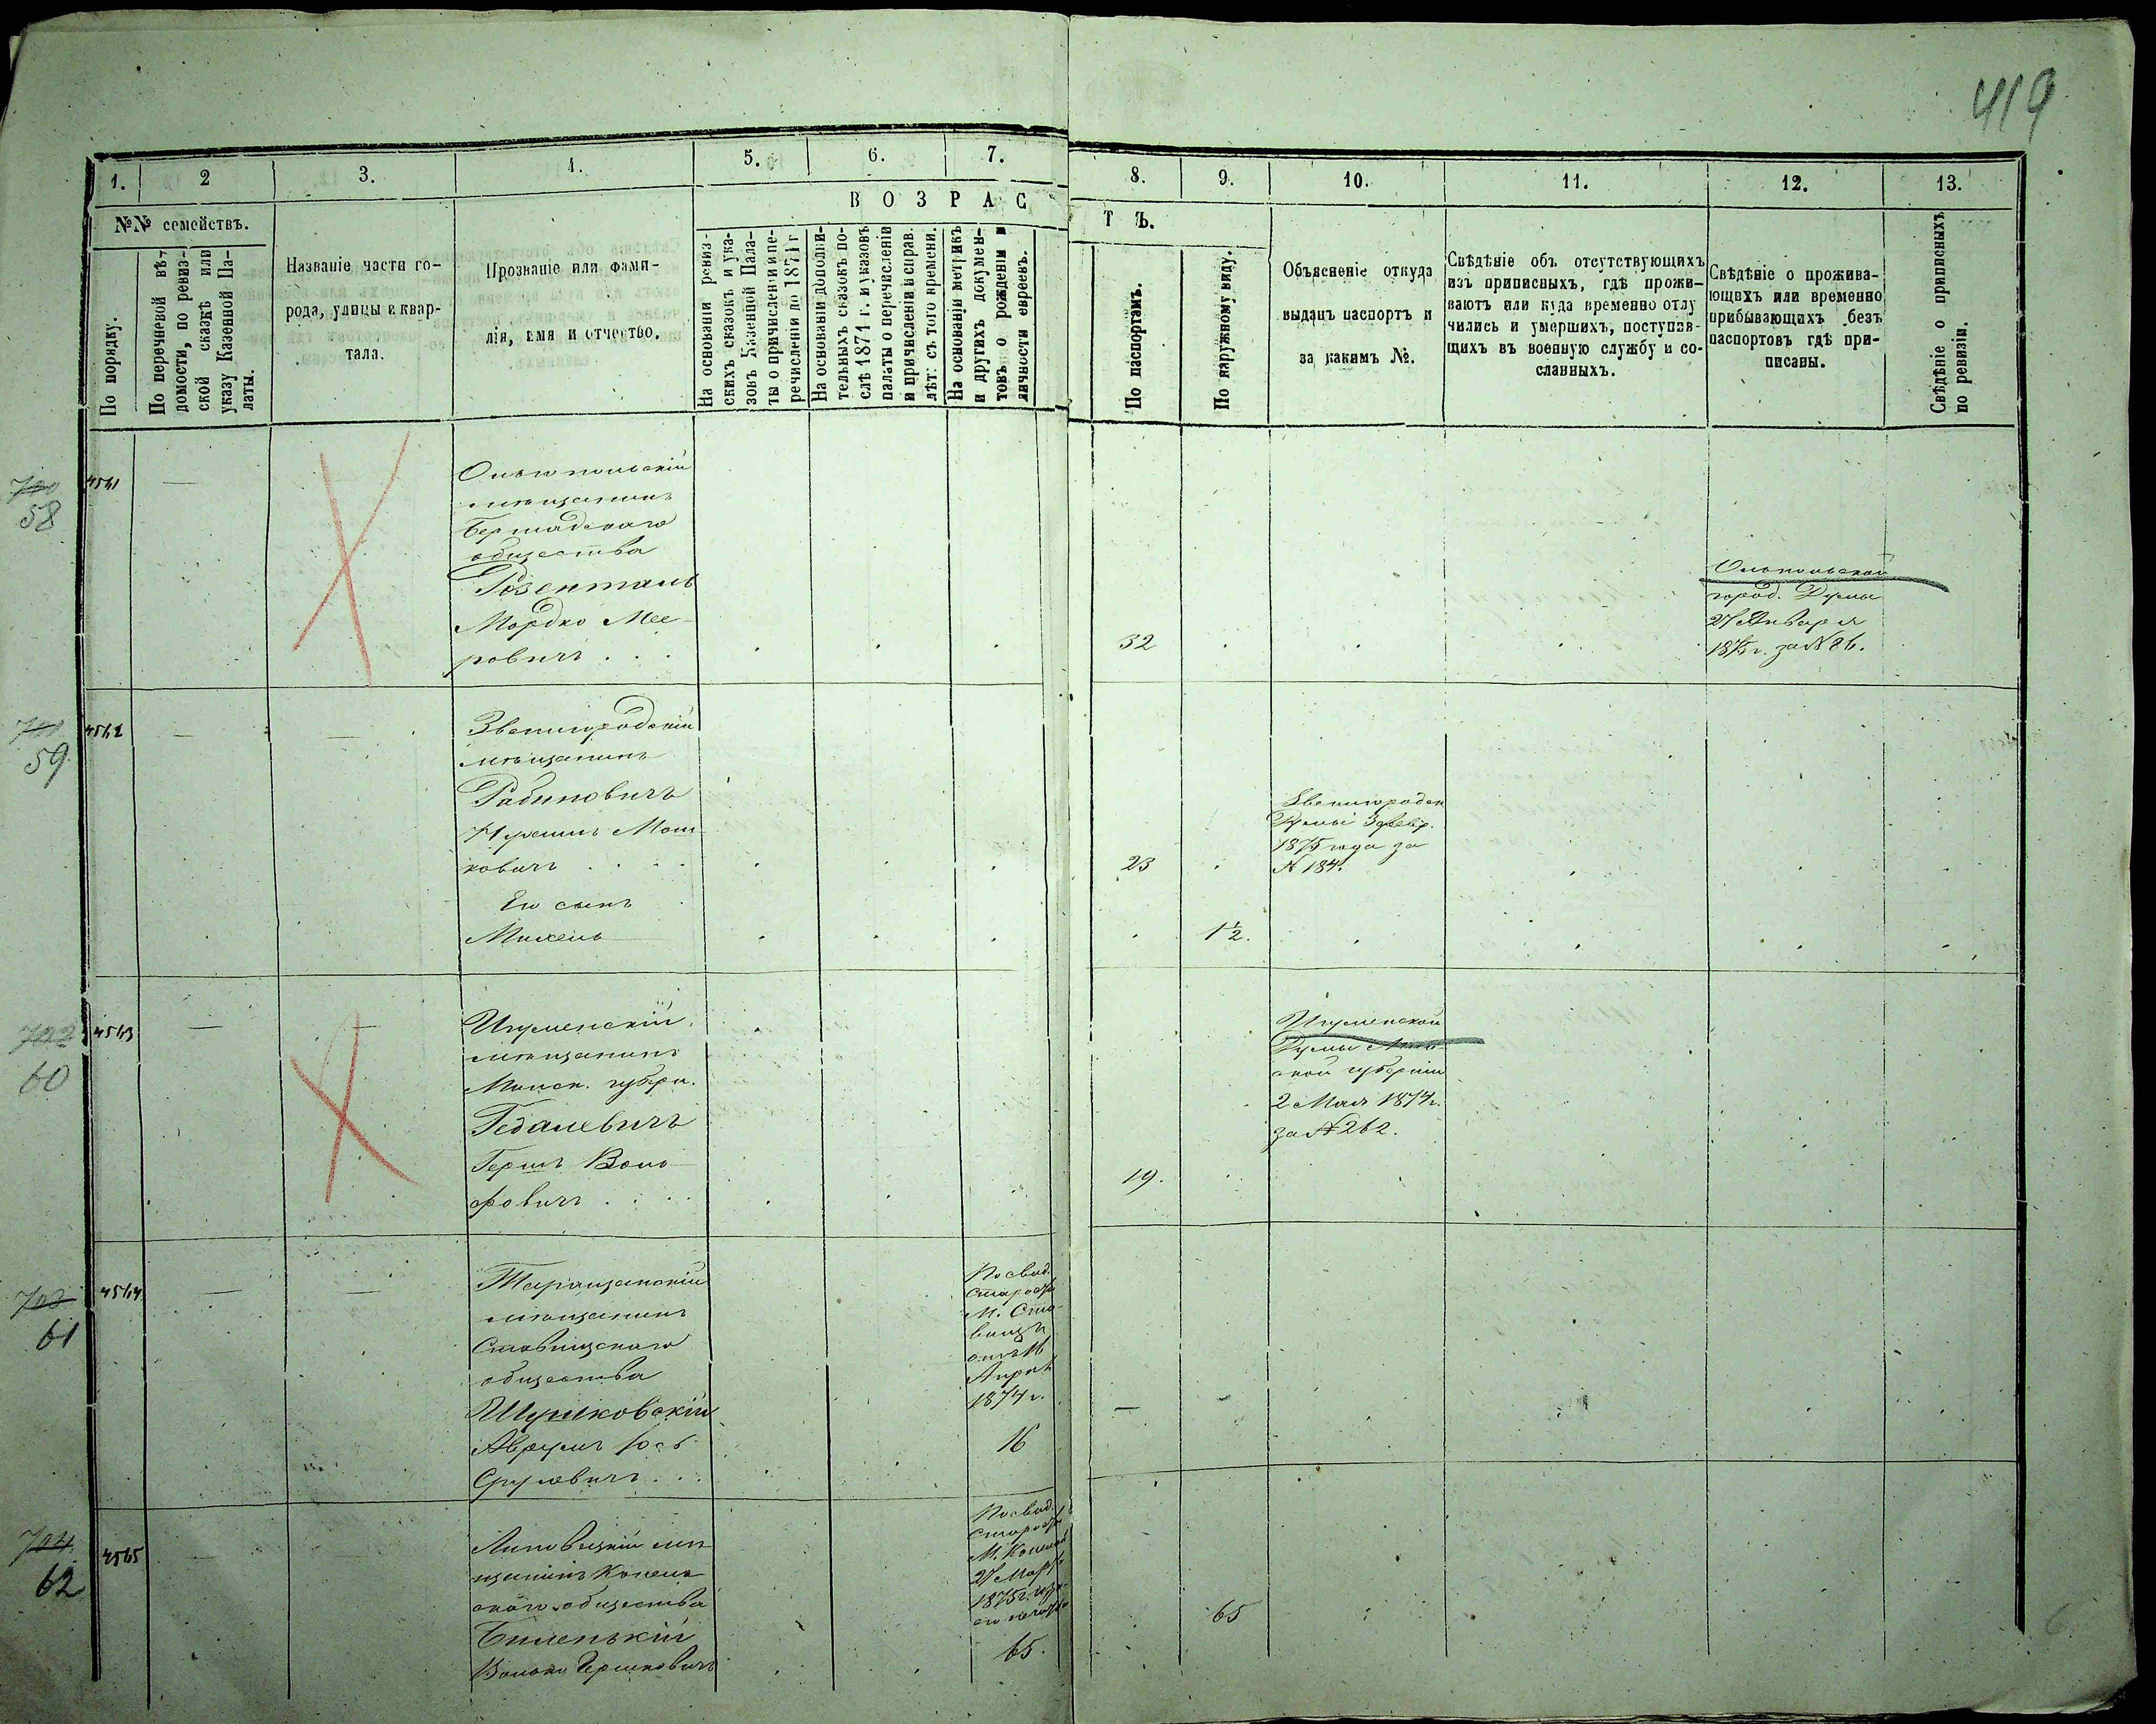 419
1.
2
3.
4.
5.
6.
7.
8.
9.
10.
11.
12.
13.
№№ семействъ.
По порядку.
По перечневой вѣ-
домости, по ревиз-
ской сказкѣ или
указу Казенной Па-
латы.
Названіе части го-
рода, улицы и квар-
тала.
Прозваніе или фами-
лія, имя и отчество.
ВОЗРАС
ТЪ.
На основаніи ревиз-
скихъ сказокъ и ука-
зовъ Казенной Пала-
ты о причисленіи и пе-
речисленіи до 1871 г
На основаніи дополни-
тельныхъ сказокъ по-
слѣ 1871 г. и указовъ
палаты о перечисленіи
и причисленіи и справ.
лѣт: съ того времени.
На основаніи метрикъ
и другихъ докумен-
товъ о рожденіи и
личности евреевъ.
По паспортамъ.
По наружному виду.
Объясненіе откуда
выданъ паспортъ и
за какимъ №.
Свѣдѣніе объ отсутствующихъ
изъ приписныхъ, гдѣ прожи-
ваютъ или куда временно отлу
чились и умершихъ, поступив-
щихъ въ военную службу и со-
сланныхъ.
Свѣдѣніе о прожива-
ющихъ или временно
прибывающихъ безъ
паспортовъ гдѣ при-
писаны.
Свѣдѣніе о приписныхъ
по ревизіи.
700
58
4541
Ольгопольскій
мѣщанинъ
Бершадскаго
общества
Розенталь
Мордко Мее-
ровичъ
32
Ольгопольской
город. Думы
27 Января
1875 г. за № 86.
701
59
4542
Звенигородскій
мѣщанинъ
Рабиновичъ
Нухимъ Мош-
ковичъ
23
Звенигородск
Думы 3 февр.
1875 года за
№ 184.
Его сынъ
Михель
1 1/2.
702
60
4543
Игуменскій
мѣщанинъ
Минск. губерн.
Гедалевичъ
Гершъ Воль-
фовичъ
19.
Игуменской
Думы Мин-
ской губерніи
2 Мая 1874 г.
за № 262.
703
61
4544
Таращанскій
мѣщанинъ
Ставищскаго
общества
Шушковскій
Аврумъ Іось
Срулевичъ
По свид.
Старосты
М. Ста-
вищъ
отъ 16
Апрѣл
1874 г.
16
704
62
4545
Липовецкій мѣ
щанинъ Конель
скаго общества
Биленькій
Волько Гершковичъ
По свид.
Старосты
М. Конелы
27 Марта
1875 г.
65.
65